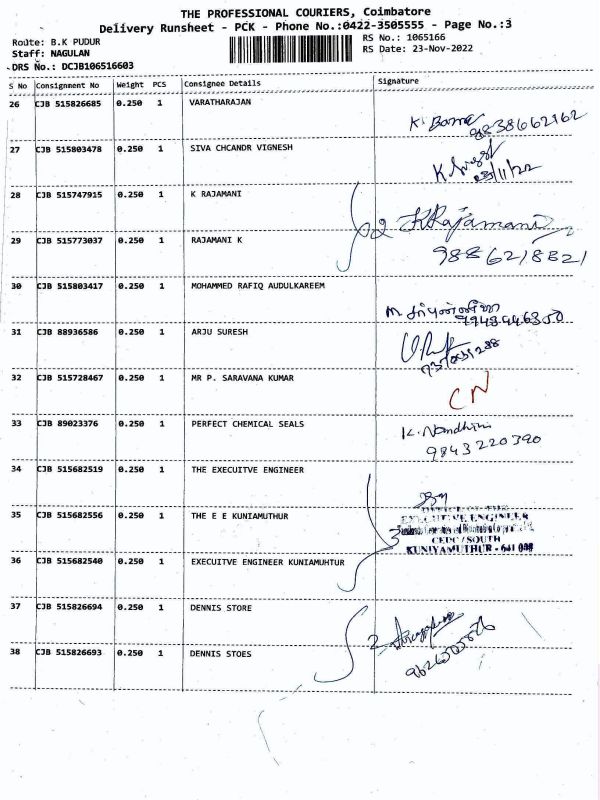 THE PROFESSIONAL COURIERS, Coimbatore
Delivery Runsheet - PCK - Phone No.:0422-3505555 - Page No.:3
Route: B.K PUDUR
RS No.: 1065166
Staff: NAGULAN
RS Date: 23-Nov-2022
DRS No.: DCJB106516603
S No Consignment No Weight PCS Consignee Details Signature
26 CJB 515826685 0.250 1 VARATHARAJAN
K.
27 CJB 515803478 0.250 1 SIVA CHCANDR VIGNESH
K 23/11/22
28 CJB 515747915 0.250 1 K RAJAMANI
2 K.Rajamani
29 CJB 515773037 0.250 1 RAJAMANI K
9886218821
30 CJB 515803417 0.250 1 MOHAMMED RAFIQ AUDULKAREEM
31 CJB 88936586 0.250 1 ARJU SURESH
32 CJB 515728467 0.250 1 MR P. SARAVANA KUMAR
CN
33 CJB 89023376 0.250 1 PERFECT CHEMICAL SEALS
K. Nandhini
9843220390
34 CJB 515682519 0.250 1 THE EXECUITVE ENGINEER
35 CJB 515682556 0.250 1 THE E E KUNIAMUTHUR
3
OFFICE OF THE
EXECUTIVE ENGINEER
CEDC / SOUTH
KUNIYAMUTHUR - 641 008
36 CJB 515682540 0.250 1 EXECUITVE ENGINEER KUNIAMUHTUR
37 CJB 515826694 0.250 1 DENNIS STORE
2
38 CJB 515826693 0.250 1 DENNIS STOES